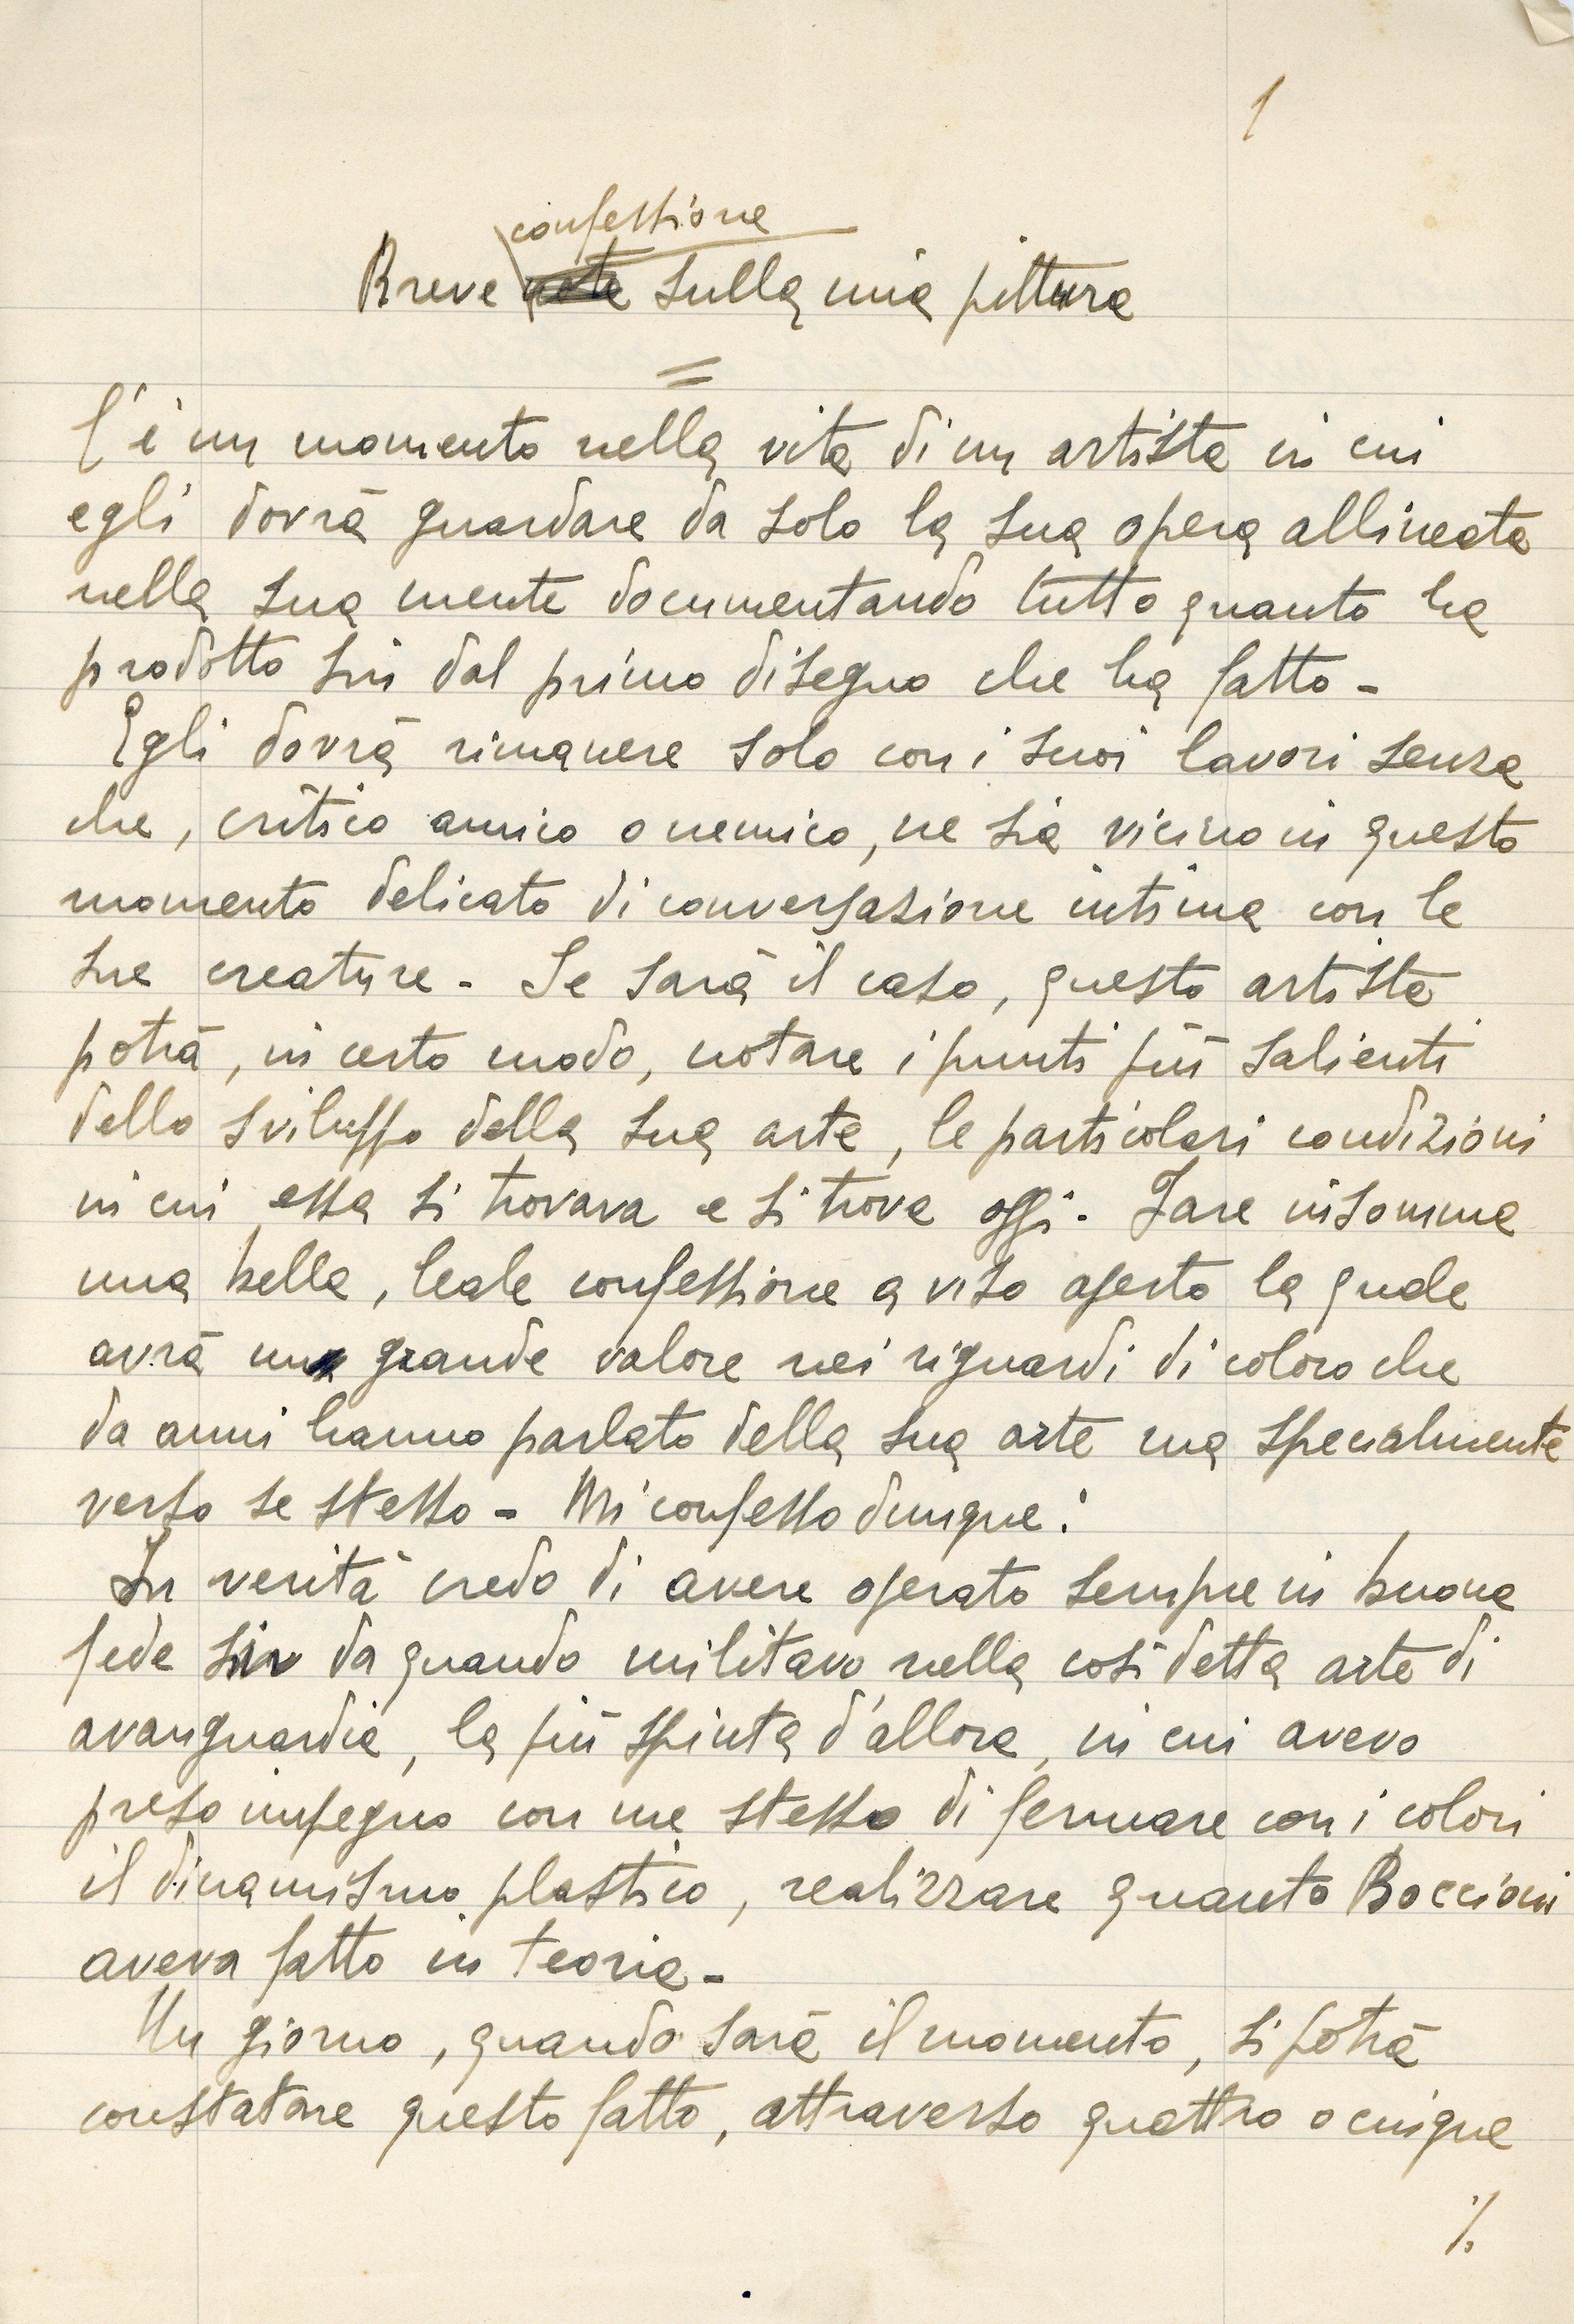 1
confessione
Breve note sulla mia pittura
=
C'è un momento nella vita di un artista in cui
egli dovrà guardare da solo la sua opera allineata
nella sua mente documentando tutto quanto ha
prodotto sin dal primo disegno che ha fatto -
Egli dovrà rimanere solo con i suoi lavori senza
che, critico amico o nemico, ne sia vicino in questo
momento delicato di conversazione intima con le
sue creature - Se sarà il caso, questo artista
potrà, in certo modo, notare i punti più salienti
dello sviluppo della sua arte, le particolari condizioni
in cui essa si trovava e si trova oggi. Fare insomma
una bella, leale confessione a viso aperto la quale
avrà un grande valore nei riguardi di coloro che
da anni hanno parlato della sua arte ma specialmente
verso se stesso - Mi confesso dunque:
In verità credo di avere operato sempre in buona
fede sin da quando militavo nella cosi detta arte di
avanguardia, la più spinta d'allora, in cui avevo
preso impegno con me stesso di fermare con i colori
il dinamismo plastico, realizzare quanto Boccioni
aveva fatto in teoria -
Un giorno, quando sarà il momento, si potrà
constatare questo fatto, attraverso quattro o cinque
./.